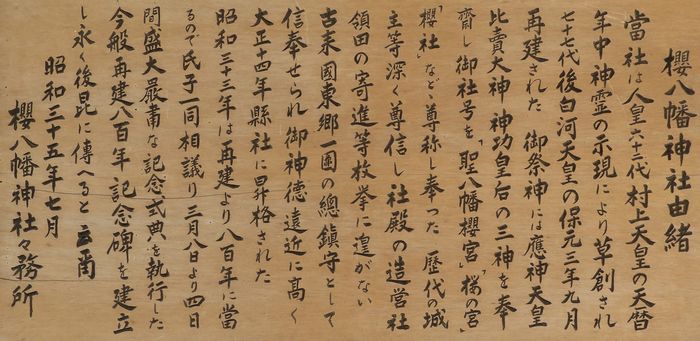 櫻八幡神社由緒
當社は人皇六十二代村上天皇の天暦
年中神霊の示現により草創され
七十七代後白河天皇の保元三年九月
再建された 御祭神には應神天皇
比賣大神 神功皇后の三神を奉
齋し御社号を「聖八幡櫻宮」「桜の宮」
「櫻社」などゝ尊称し奉った 歴代の城
主等深く尊信し社殿の造営社
領田の寄進等枚挙に遑がない
古来國東郷一圓の總鎮守として
信奉せられ御神徳遠近に高く
大正十四年縣社に昇格された
昭和三十三年は再建より八百年に當
るので氏子一同相議り三月八日より四日
間盛大嚴肅な記念式典を執行した
今般再建八百年記念碑を建立
し永く後昆に傳へると云爾
昭和三十五年七月
櫻八幡神社々務所